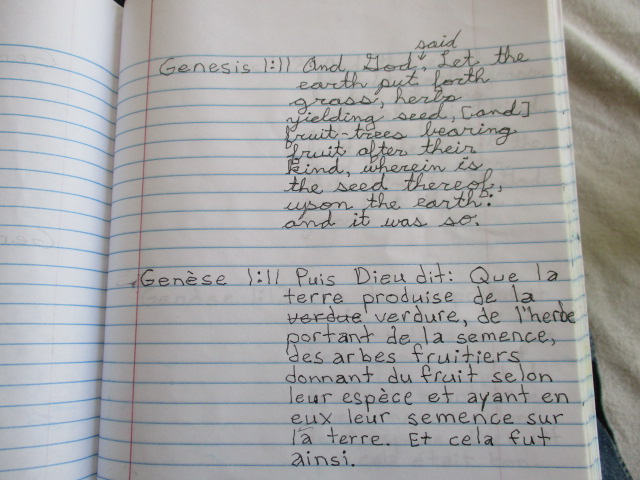 Genesis 1:11 And God said, Let the
earth put forth
grass, herbs
yielding seed, [and]
fruit-trees bearing
fruit after their
kind, wherein is
the seed thereof,
upon the earth:
and it was so.
Genèse 1:11 Puis Dieu dit: Que la
terre produise de la
verdue verdure, de l'hede
portant de la semence,
des arbes fruitiers
donnant du fruit selon
leur espèce et ayant en
eux leur semence sur
la terre. Et cela fut
ainsi.